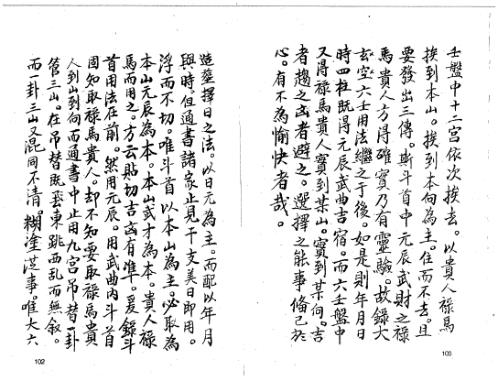 造塟擇日之法。以日元為主。而配以年月
與時。但通書諸家止見干支美日即用。
浮而不切。唯斗首以本山為主。必取為
本山元辰為本。本山武才為本。貴人祿
馬而用之。方云貼切。吉凶有準。爰錄斗
首用法在前。然用元辰。用武曲內斗首
固知取祿馬貴人。却不知要取祿馬貴
人到山到向。而通書中止用九宮吊替一卦
管三山。在吊替既東跳西乱而無叙。
而一卦三山又混同不清。糊塗從事。唯大六
102
壬盤中十二宮依次挨去。以貴人祿馬
挨到本山。挨到本向為主。住而不去。且
要發出三傳。斯斗首中元辰武財之祿
馬貴人方得確實。乃有靈驗。故錄大
玄空六壬用法繼之于後。如是則年月日
時四柱既得元辰武曲吉宿。而六壬盤中
又得祿馬貴人實到某山。實到某向。吉
者趨之。凶者避之。選擇之能事俻已於
心。有不為愉快者哉。
103